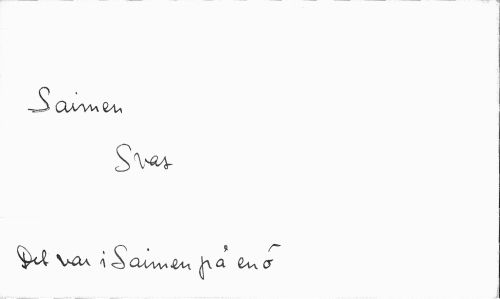 Saimen
Svas
Det var i Saimen på en ö